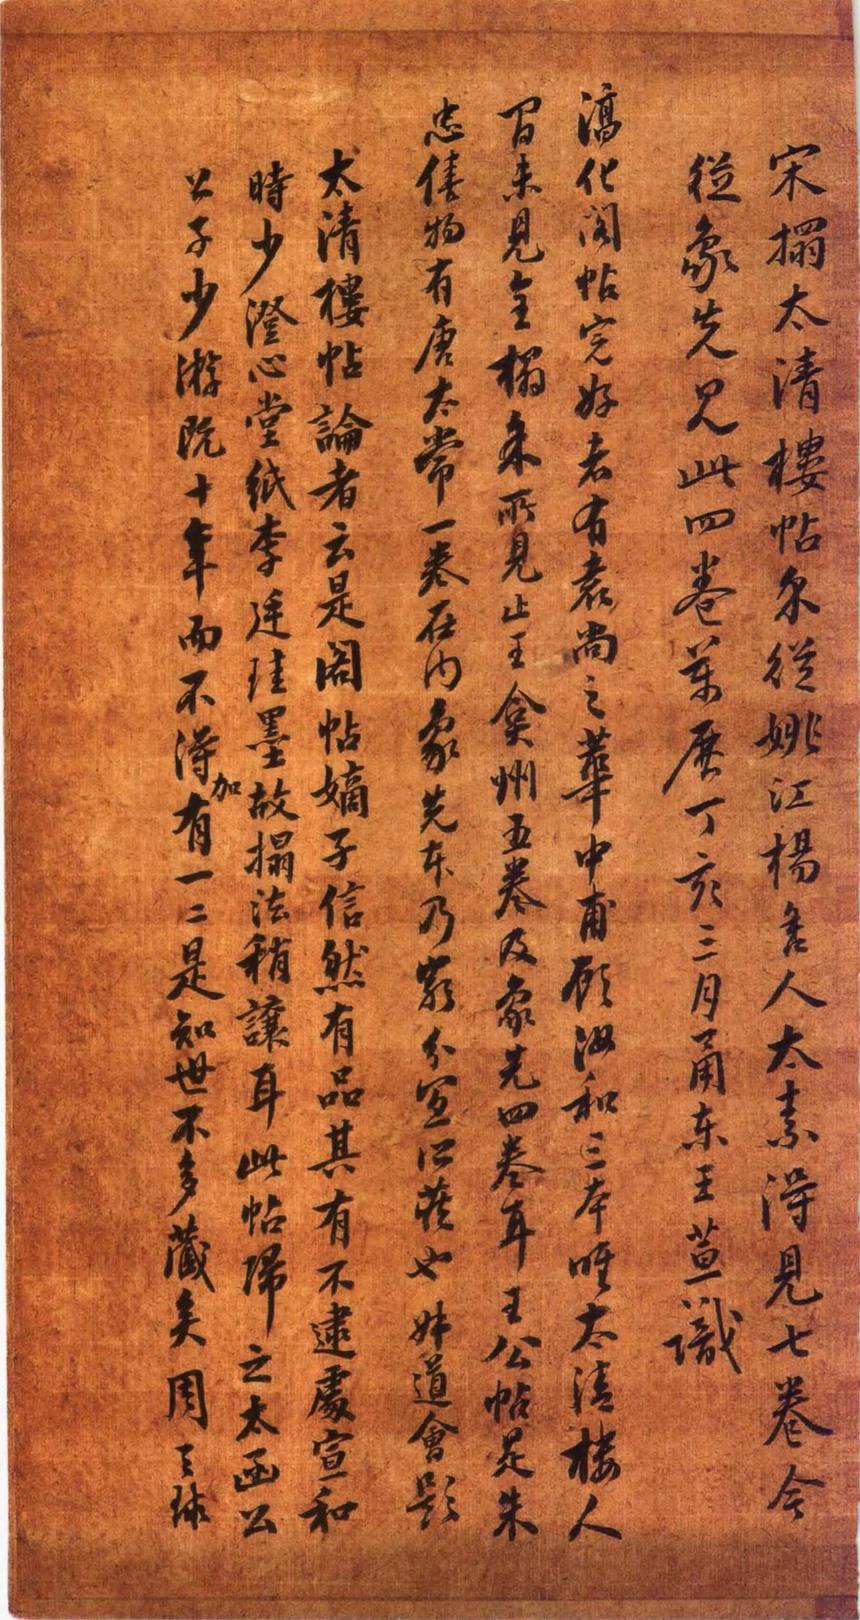 宋搨太清樓帖余從姚江楊舍人太素淂見七卷今
從象先見此四卷萬曆丁亥三月甬東王萱識
淳化閣帖完好者有袁尚之華中甫顧汝和三本唯太清樓人
間未見全搨朱所見止王弇州五卷及象先四卷耳王公帖是朱
忠僖物有唐太常一卷在內象先本乃嚴分宜口藏也 道會
太清樓帖論者云是閣帖嫡子信然有品其有不逮處宣和
時少澄心堂紙李廷珪墨故搨法稍讓耳此帖歸之太函公
公子少游既十年而不淂加有一二是知世不多藏矣周天球